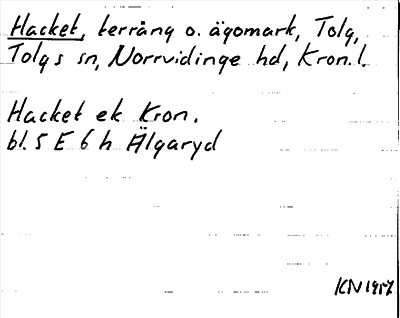 Hacket, terräng o. ägomark, Tolg,
Tolgs sn, Norrvidinge hd, Kron. l.
Hacket ek Kron.
bl. 5 E 6 h Älgaryd
KN 1957